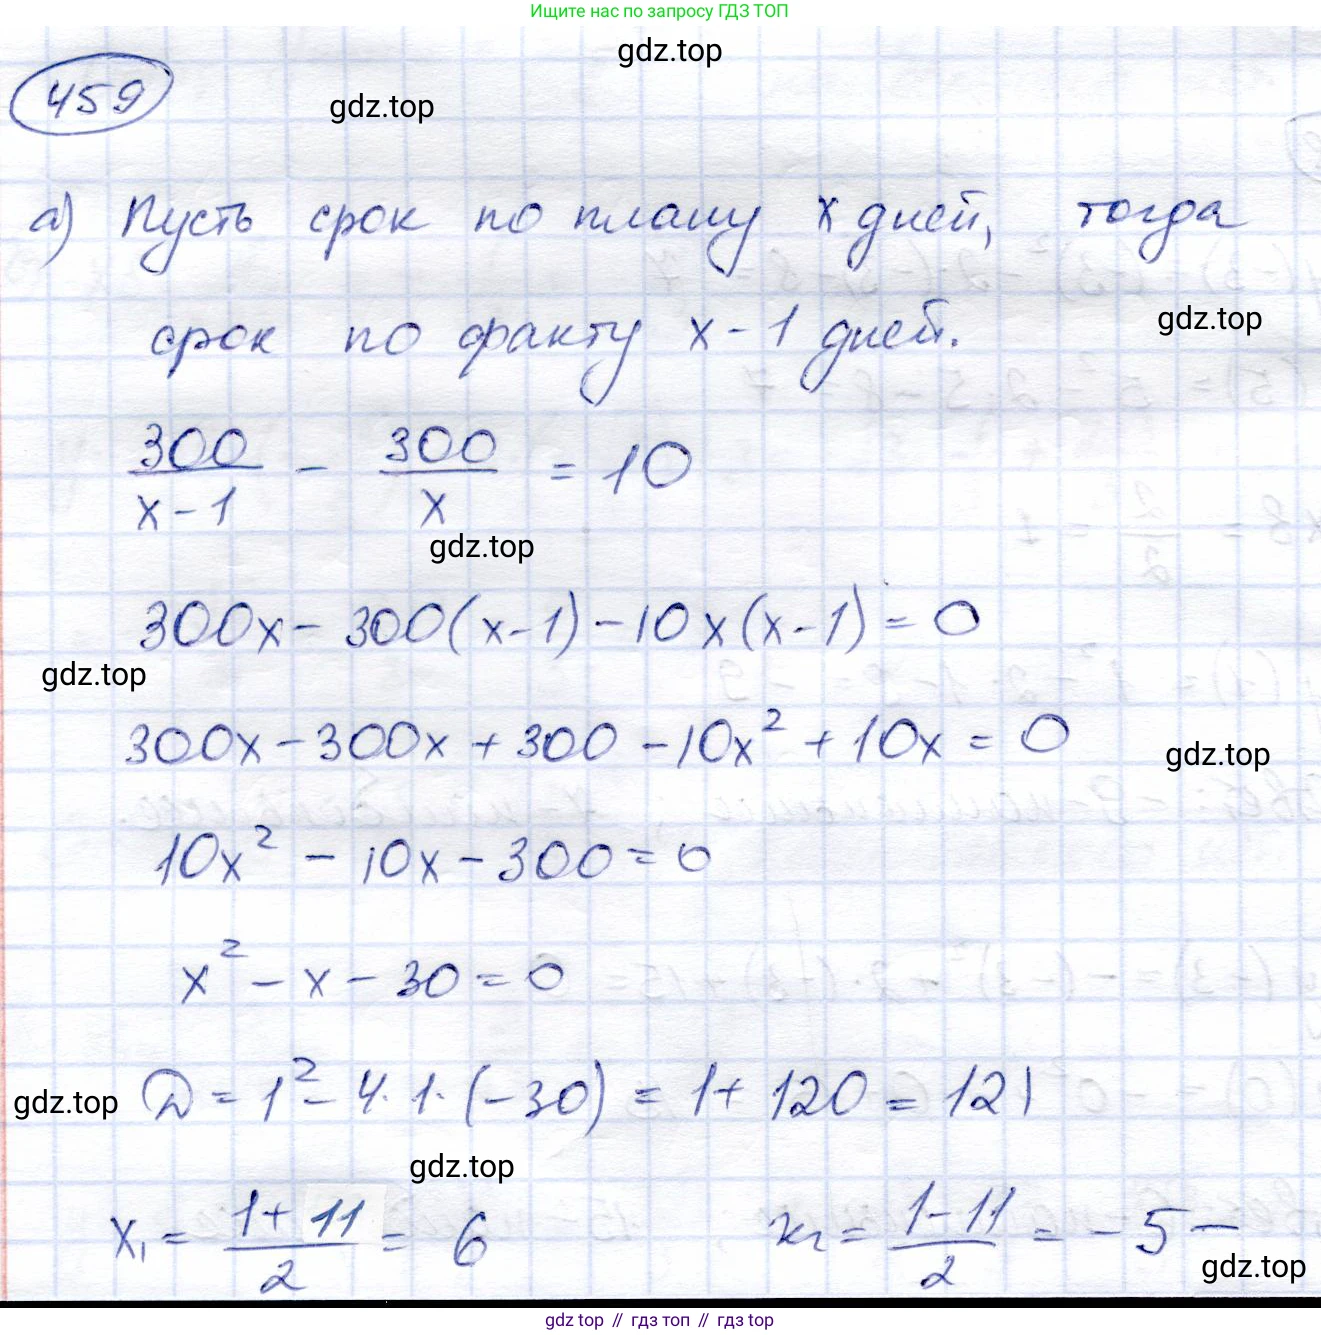 Ищите нас по запросу ГДЗ ТОП
gdz.top
459
gdz.top
а) Пусть срок по плану x дней, тогда
срок по факту x - 1 дней.
gdz.top
300/(x-1) - 300/x = 10
gdz.top
300x - 300(x-1) - 10x(x-1) = 0
gdz.top
300x - 300x + 300 - 10x² + 10x = 0
gdz.top
10x² - 10x - 300 = 0
x² - x - 30 = 0
D = 1² - 4·1·(-30) = 1 + 120 = 121
gdz.top
gdz.top
x₁ = (1+11)/2 = 6   x₂ = (1-11)/2 = -5 -
gdz.top
gdz top // гдз топ // gdz top